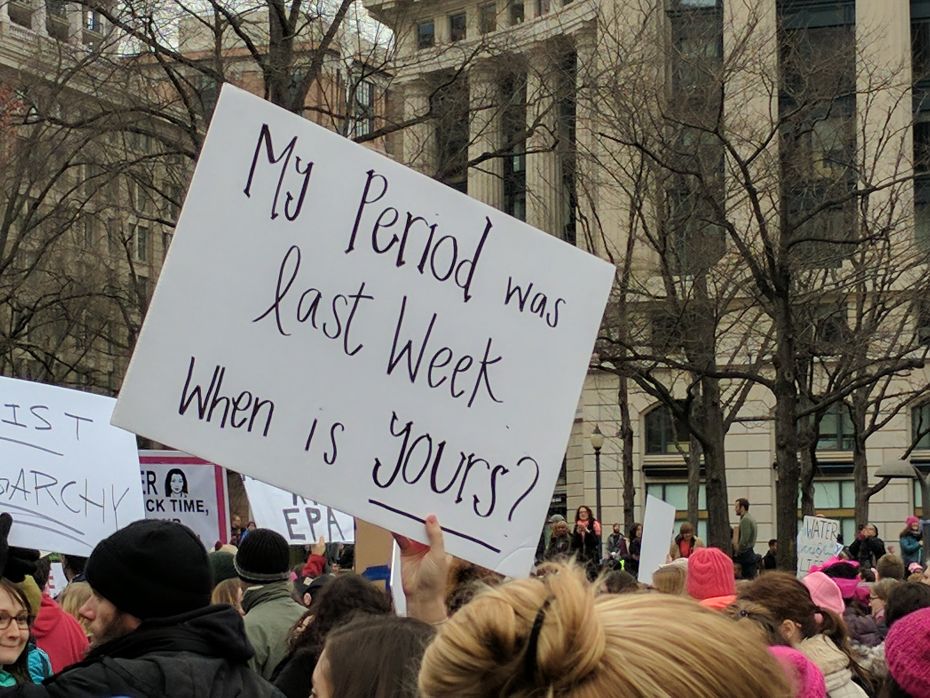 My Period was
last Week
When is yours?
IST
ARCHY
CK TIME,
EPA
WATER